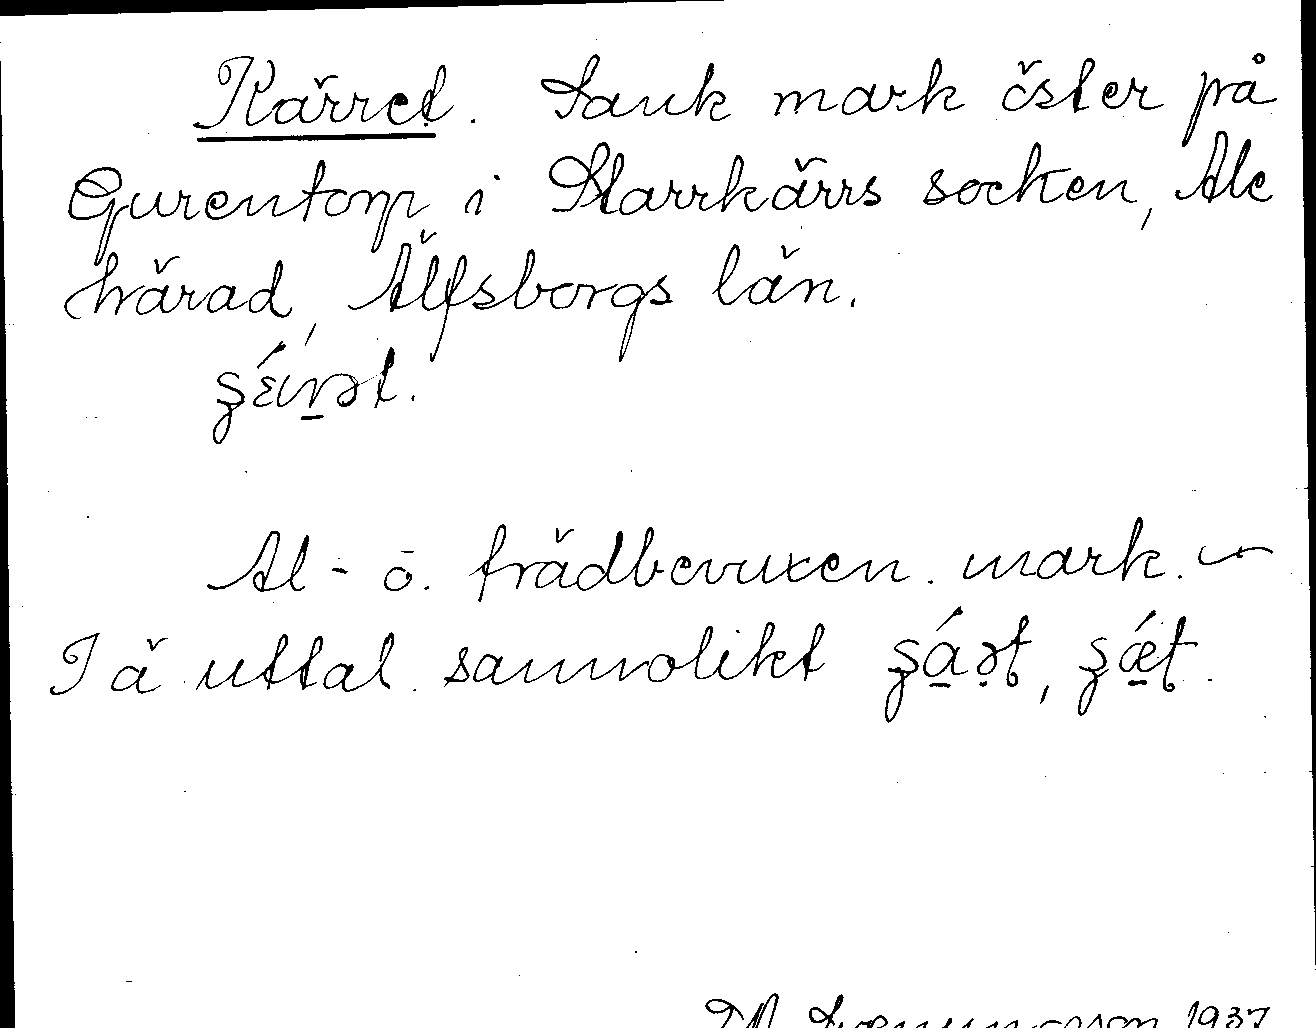 Kärret. Sank mark öster på
Gurentorp i Starrkärrs socken, Ale
härad, Älfsborgs län.

Al- o. trädbevuxen mark.
I ä uttal sannolikt
1937